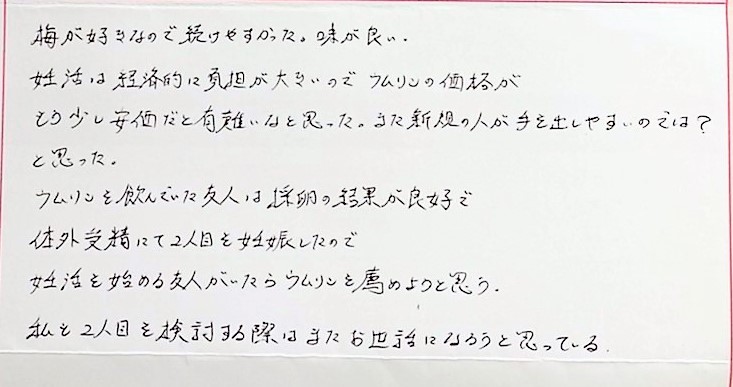 梅が好きなので続けやすかった。味が良い。
妊活は経済的に負担が大きいので ウムリンの価格が
もう少し安価だと有難いなと思った。また新規の人が手を出しやすいのでは？
と思った。
ウムリンを飲んでいた友人は採卵の結果が良好で
体外受精にて2人目を妊娠したので
妊活を始める友人がいたらウムリンを薦めようと思う。
私も2人目を検討する際はまたお世話になろうと思っている。